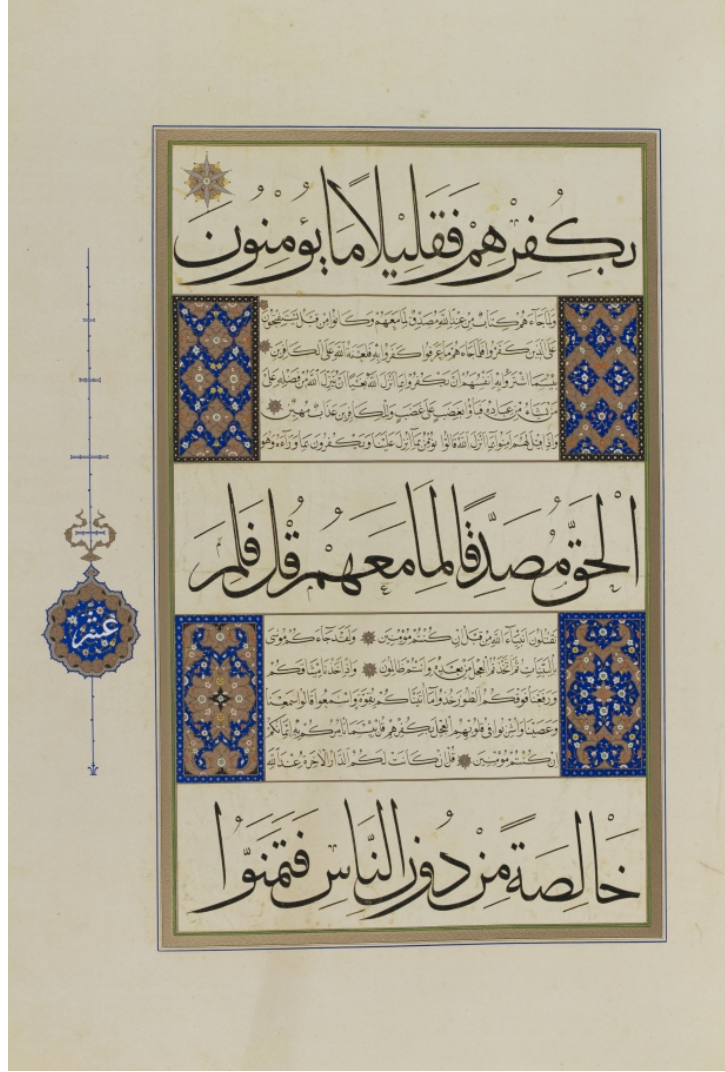 بِكُفْرِهِمْ فَقَلِيلًا مَا يُؤْمِنُونَ
ولما جاءهم كتاب من عند الله مصدق لما معهم وكانوا من قبل يستفتحون
على الذين كفروا فلما جاءهم ما عرفوا كفروا به فلعنة الله على الكافرين
بئسما اشتروا به انفسهم ان يكفروا بما انزل الله بغيا ان ينزل الله من فضله على
من يشاء من عباده فباؤا بغضب على غضب وللكافرين عذاب مهين
واذا قيل لهم امنوا بما انزل الله قالوا نؤمن بما انزل علينا ويكفرون بما وراءه وهو
الْحَقُّ مُصَدِّقًا لِمَا مَعَهُمْ قُلْ فَلِمَ
تقتلون انبياء الله من قبل ان كنتم مؤمنين ولقد جاءكم موسى
بالبينات ثم اتخذتم العجل من بعده وانتم ظالمون واذ اخذنا ميثاقكم
ورفعنا فوقكم الطور خذوا ما اتيناكم بقوة واسمعوا قالوا سمعنا
وعصينا واشربوا في قلوبهم العجل بكفرهم قل بئسما يأمركم به ايمانكم
ان كنتم مؤمنين قل ان كانت لكم الدار الاخرة عند الله
خَالِصَةً مِنْ دُونِ النَّاسِ فَتَمَنَّوُا
عشر